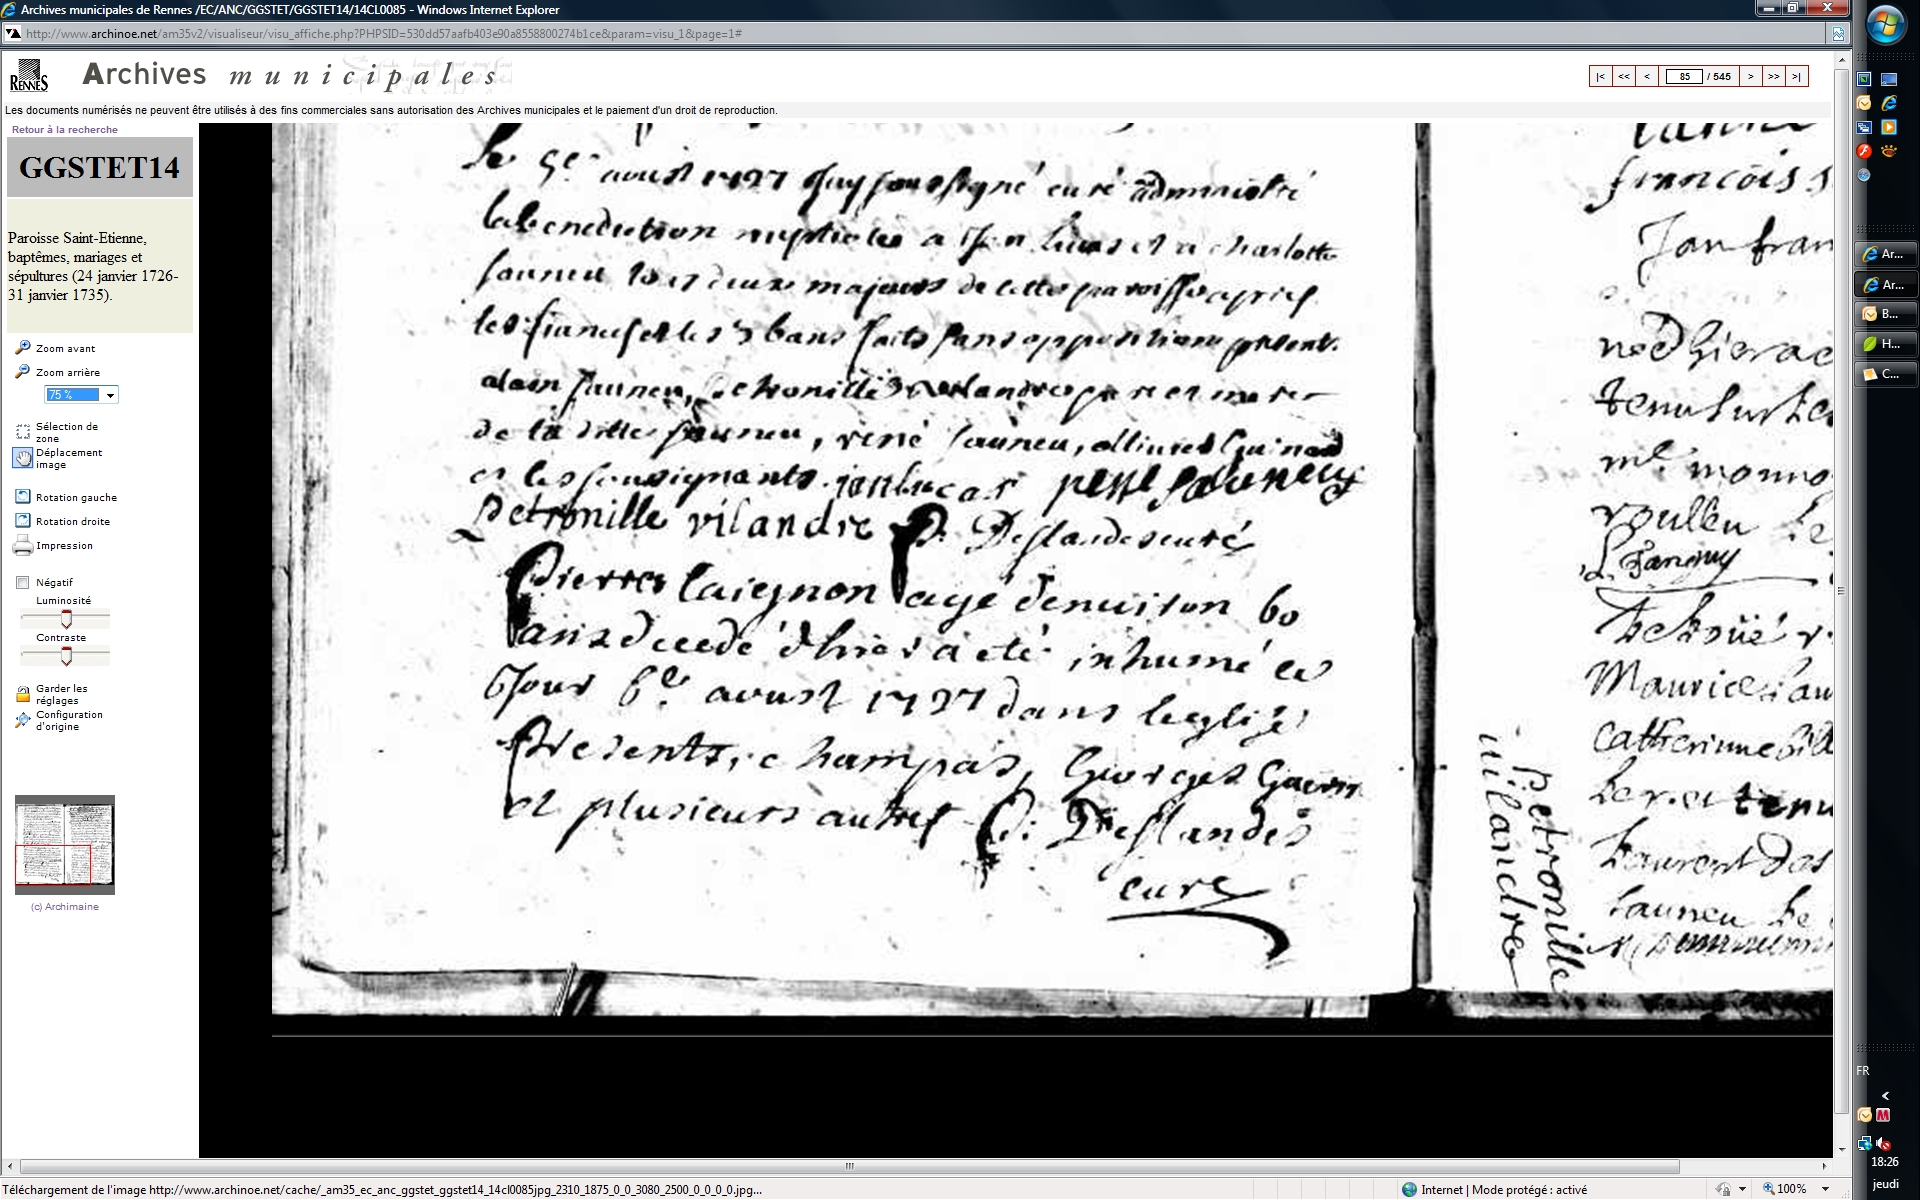 Archives municipales de Rennes /EC/ANC/GGSTET/GGSTET14/14CL0085 - Windows Internet Explorer
http://www.archinoe.net/am35v2/visualiseur/visu_affiche.php?PHPSID=530dd57aafb403e90a8558800274b1ce&param=visu_1&page=1#
RENNES
Archives municipales
|< << < 85 / 545 > >> >|
Les documents numérisés ne peuvent être utilisés à des fins commerciales sans autorisation des Archives municipales et le paiement d'un droit de reproduction.
Retour à la recherche
GGSTET14
Paroisse Saint-Etienne,
baptêmes, mariages et
sépultures (24 janvier 1726-
31 janvier 1735).
Zoom avant
Zoom arrière
75 %
Sélection de
zone
Déplacement
image
Rotation gauche
Rotation droite
Impression
Négatif
Luminosité
Contraste
Garder les
réglages
Configuration
d'origine
(c) Archimaine
Le 5e aoust 1727 Jay sousigné curé administré
la benediction nuptiale a Jan lucas et a charlotte
Jauneu tous deux majeurs de cette paroisse apres
les fiancés et les 3 bans faits sans opposition présents
alain Jauneu, petronille vilandre pere et mere
de la ditte Jauneu, rené Jauneu,
et les sousignants. jan lucas rene Jauneu
Petronille vilandre P. Deslandes curé
Pierre Caignon agé denviron 60
ans decedé d'hier a eté inhumé ce
Jour 6e aoust 1727 dans leglize
Presents, champas, Georges
et plusieurs autres P: Deslandes
curé
francois
Jan fran
Maurice
catherinne
Laurent des
Jauneu
Petronille
vilandre
Ar...
Ar...
B...
H...
C...
FR
18:26
jeudi
Téléchargement de l'image http://www.archinoe.net/cache/_am35_ec_anc_ggstet_ggstet14_14cl0085jpg_2310_1875_0_0_3080_2500_0_0_0_0.jpg...
Internet | Mode protégé : activé
100%